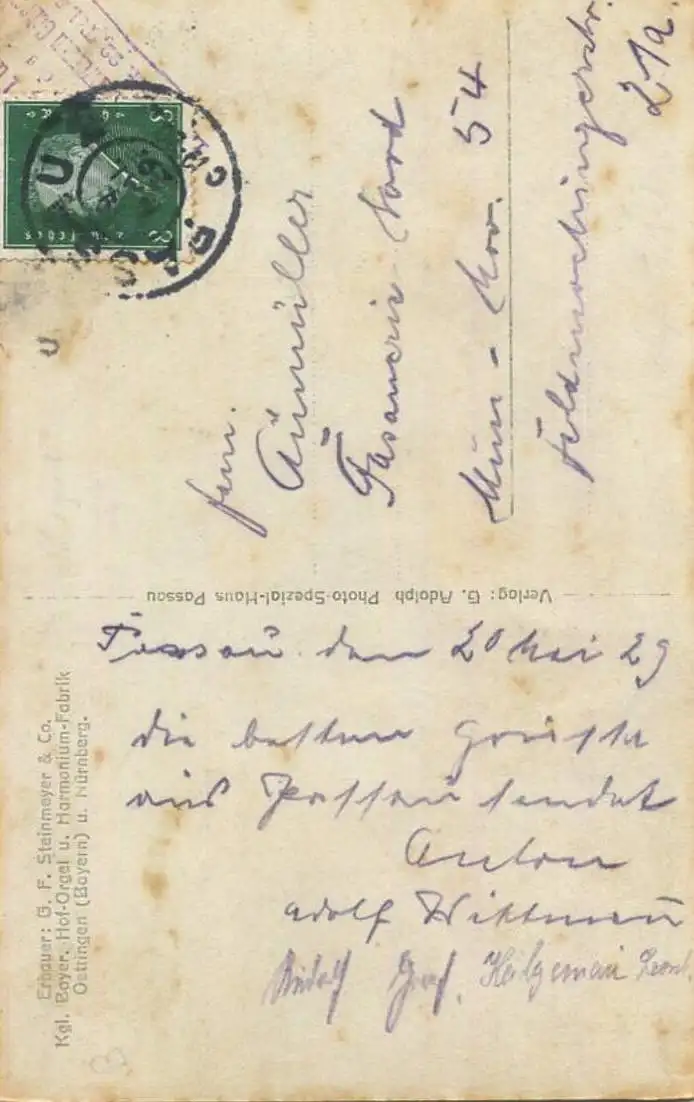 Fam.
Aumüller
Fasanerie Nord
Mün - Moo. 54
Feldmochingerstr.
21a
Verlag: G. Adolph Photo-Spezial-Haus Passau
Erbauer: G. F. Steinmeyer & Co.
Kgl. Bayer. Hof-Orgel u. Harmonium-Fabrik
Oettingen (Bayern) u. Nürnberg.
Passau den 20 Mai 29
die besten Grüsse
aus Passau sendet
Anton
Adolf Wittmann
Rudolf Graf.